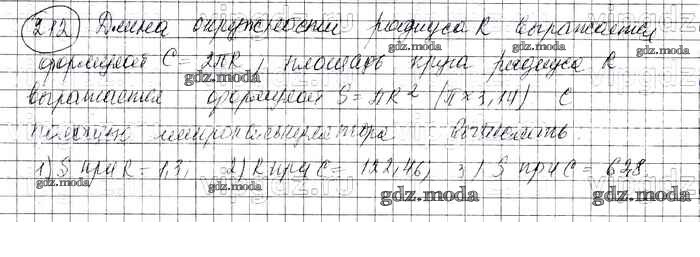 212 Длина окружности радиуса R выражается
формулой C = 2πR, площадь круга радиуса R
выражается формулой S = πR² (π ≈ 3,14) С
помощью микрокалькулятора вычислить
1) S при R = 1,3, 2) R при C = 122,46, 3) S при C = 628
gdz.moda
gdz.moda
gdz.moda
gdz.moda
gdz.moda
gdz.moda
gdz.moda
gdz.moda
gdz.moda